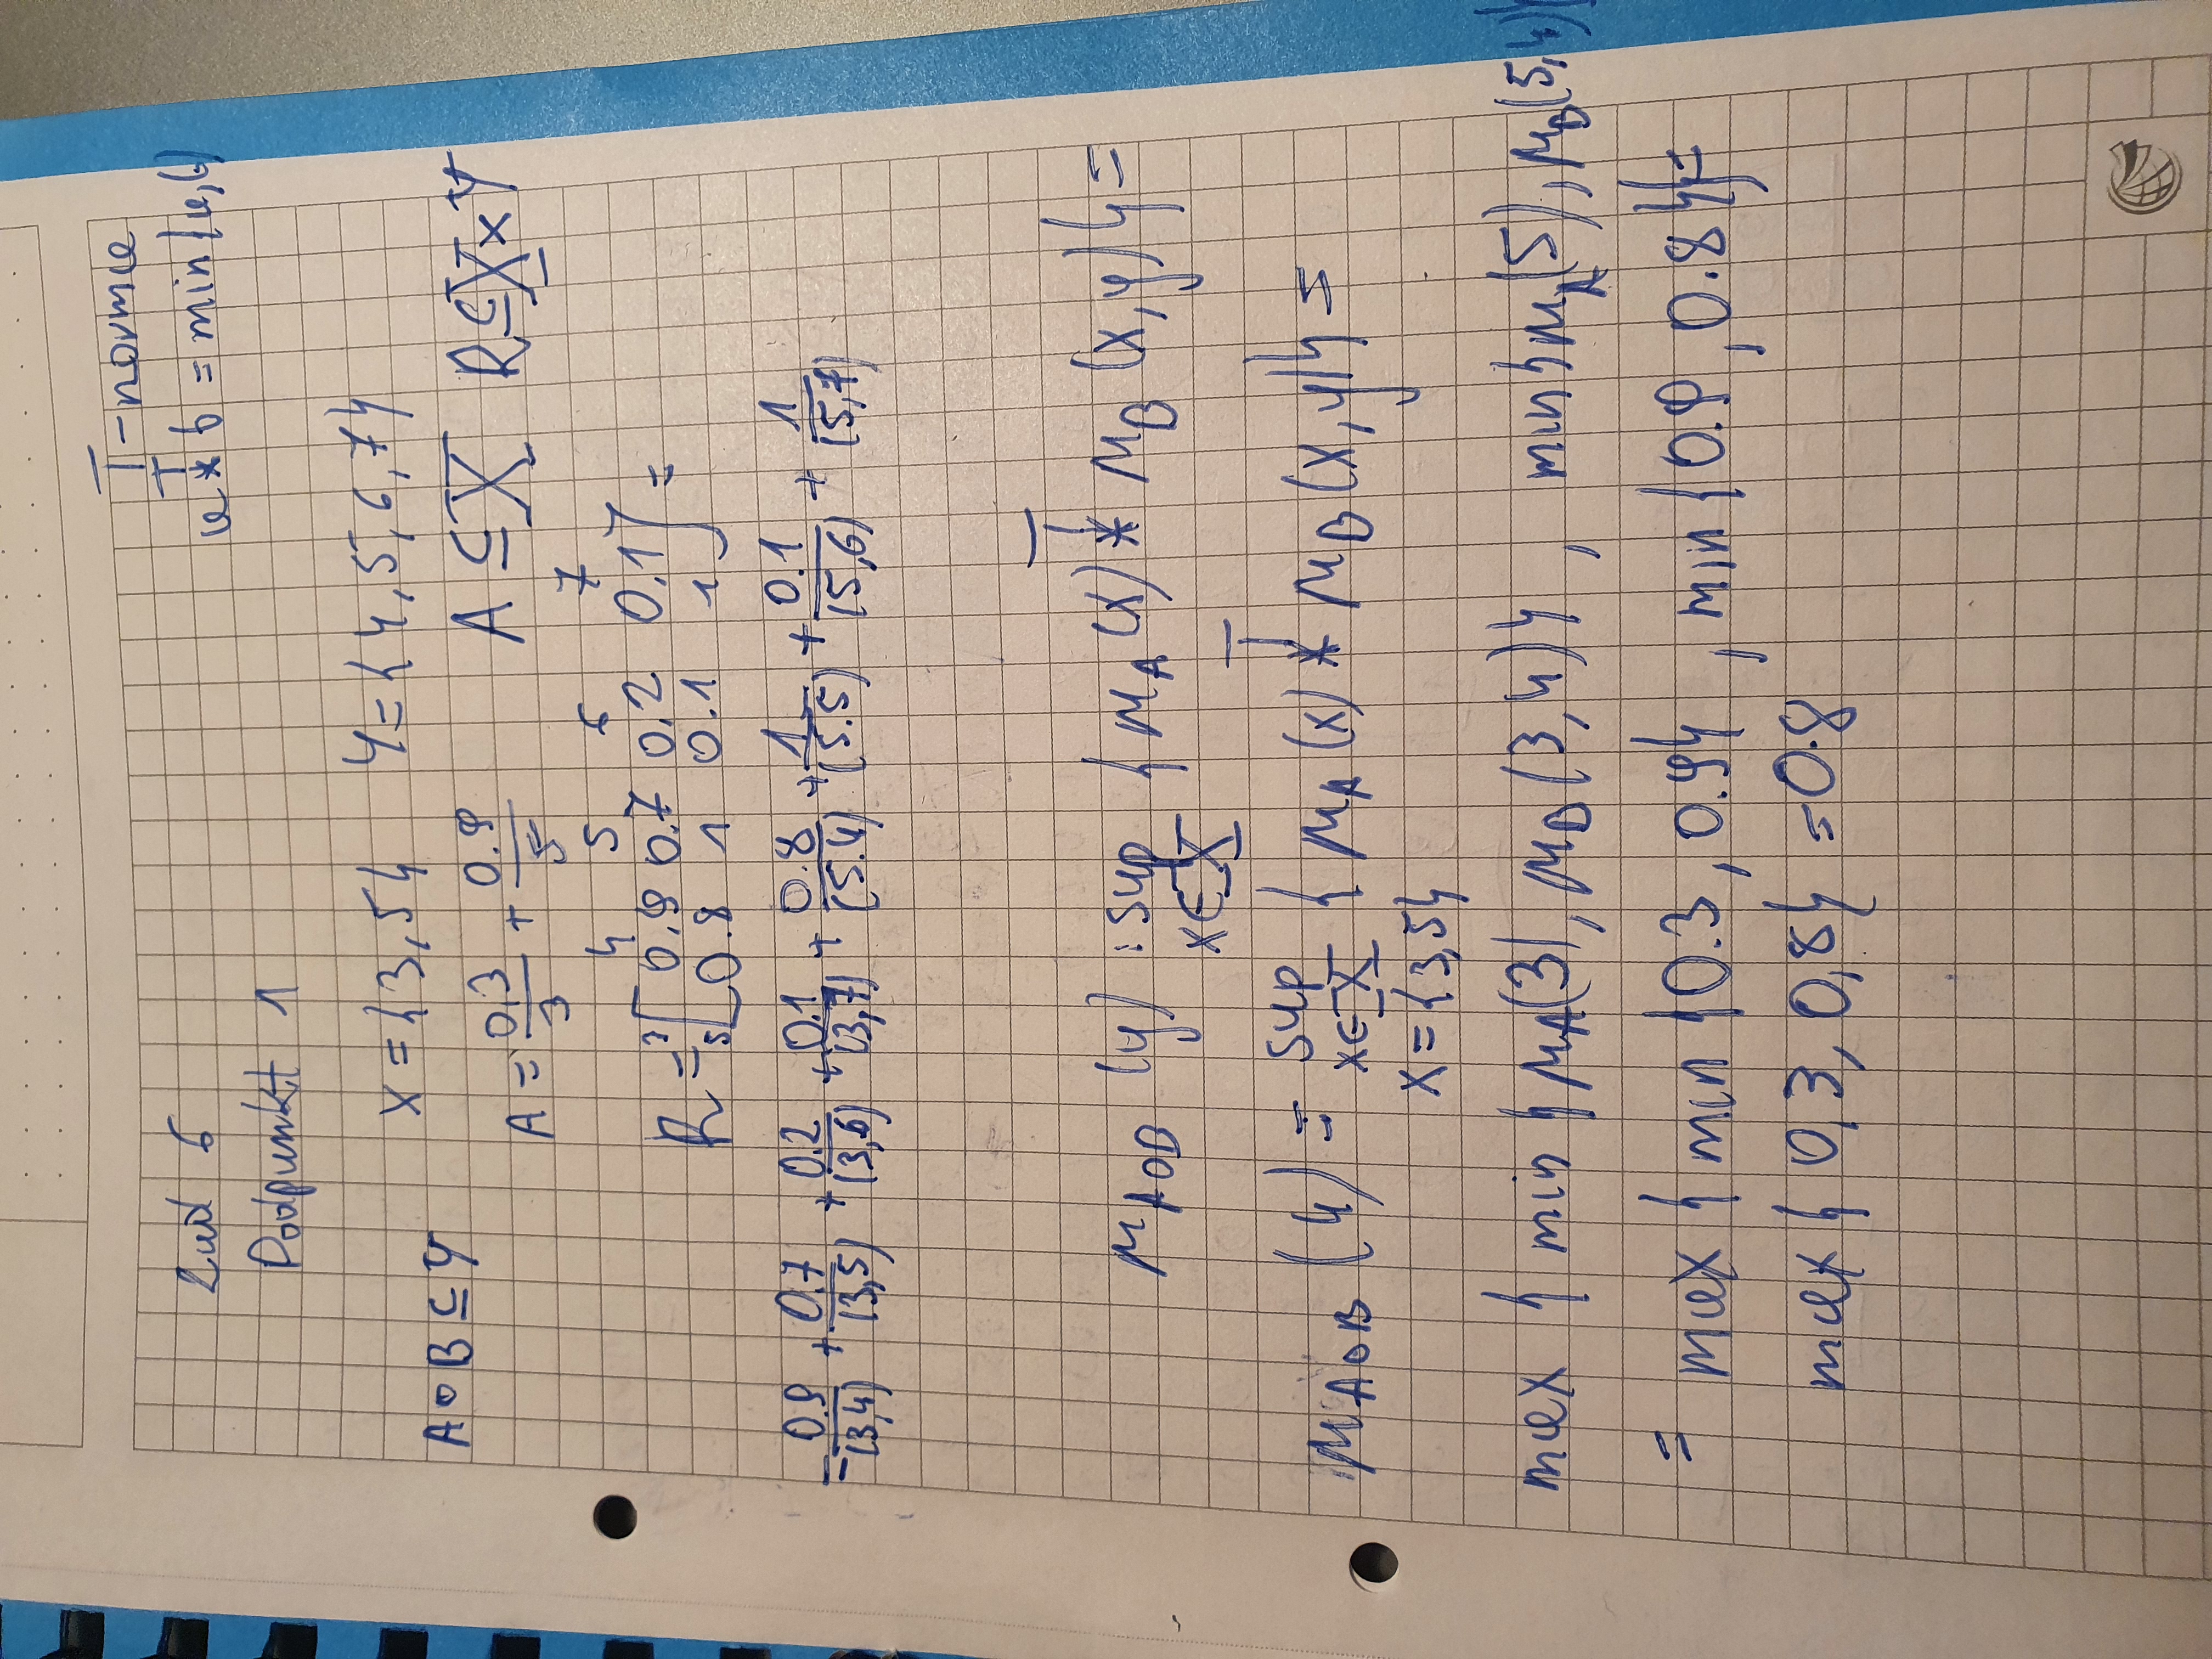 T-norma
a T* b = min{a,b}
Zad 6
Podpunkt 1
X = {3,5} Y = {4,5,6,7}
A∘B ⊆ Y
A = 0,3/3 + 0.9/5 A ⊆ X R ⊆ X×Y
4 5 6 7
R = 3[0.9 0.7 0.2 0.1
5 0.8 1 0.1 1] =
= 0.9/(3,4) + 0.7/(3,5) + 0.2/(3,6) + 0.1/(3,7) + 0.8/(5.4) + 1/(5.5) + 0.1/(5,6) + 1/(5,7)
μA∘B (y) : sup {μA(x) T* μB (x,y)} =
x∈X
μA∘B (4) = sup {μA(x) T* μB(x,y)} =
x∈X
X = {3,5}
max { min {μA(3), μB(3,4)} , min{μA(5), μB(5,4)}
= max { min {0.3, 0.9} , min {0.9, 0.8}} =
max { 0,3, 0,8} = 0.8